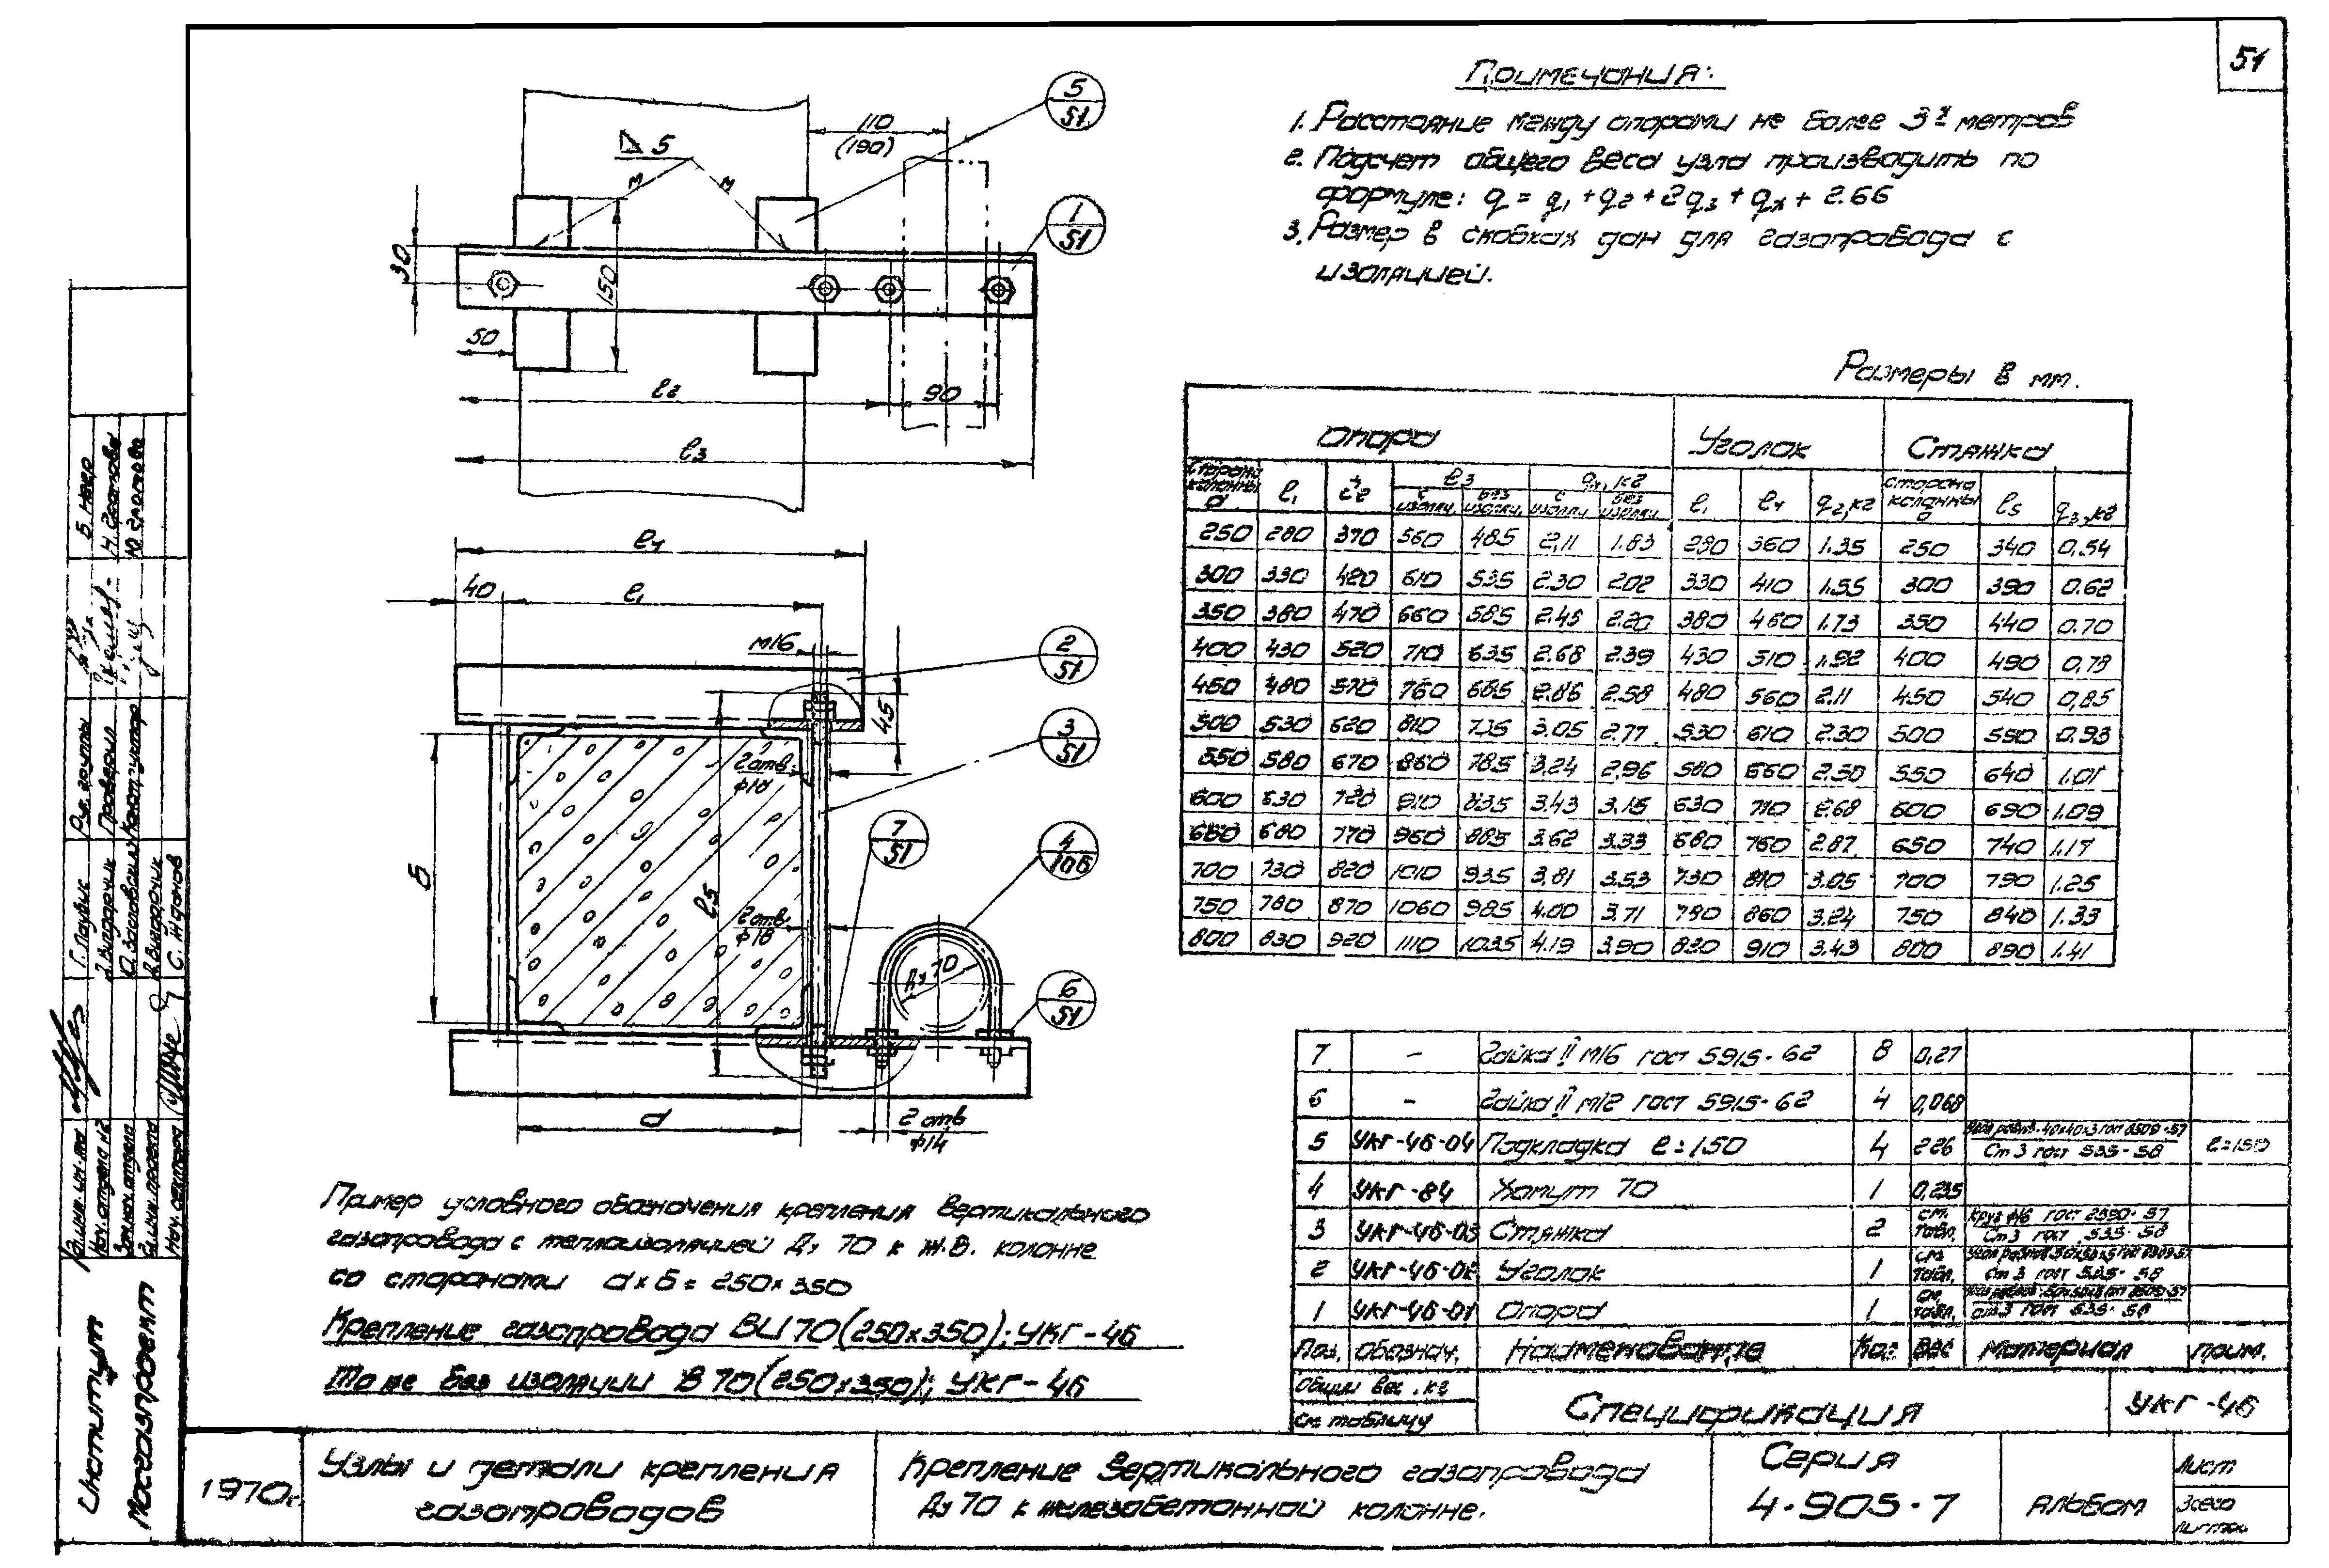 51
Примечания:
1. Расстояние между опорами не более 3х метров
2. Подсчет общего веса узла производить по
формуле: q = q1 + q2 + 2q3 + qх + 2.66
3. Размер в скобках дан для газопровода с
изоляцией.
5
51
110
(190)
5
м
м
1
51
30
150
50
l2
90
l3
l4
40
l1
М16
2
51
45
3
51
2 отв.
ф18
7
51
4
106
б
l5
2 отв.
ф18
Ду 70
6
51
а
2 отв
ф14
Размеры в мм.
Опора Уголок Стяжка
Сторона колонны а l1 l2 l3 q1, кг l1 l4 q2, кг сторона колонны б l5 q3, кг
с изоляц. без изоляц. с изоляц. без изоляц.
250 280 370 560 485 2,11 1.83 280 360 1.35 250 340 0.54
300 330 420 610 535 2.30 2.02 330 410 1.55 300 390 0.62
350 380 470 660 585 2.48 2.20 380 460 1.73 350 440 0.70
400 430 520 710 635 2.68 2.39 430 510 1.92 400 490 0.78
450 480 570 760 685 2.86 2.58 480 560 2.11 450 540 0,85
500 530 620 810 735 3.05 2.77 530 610 2.30 500 590 0.93
550 580 670 860 785 3.24 2.96 580 660 2.50 550 640 1.01
600 630 720 910 835 3.43 3.15 630 710 2.68 600 690 1.09
650 680 770 960 885 3.62 3.33 680 760 2.87 650 740 1.17
700 730 820 1010 935 3.81 3.53 730 810 3.05 700 790 1.25
750 780 870 1060 985 4.00 3.71 780 860 3.24 750 840 1.33
800 830 920 1110 1035 4.19 3.90 830 910 3.43 800 890 1.41
7 - Гайка II М16 гост 5915-62 8 0,27
6 - Гайка II М12 гост 5915-62 4 0,068
5 УКГ-46-04 Подкладка l=150 4 2.26 40x40x3 гост 8509-57 Ст 3 гост 535-58 l=150
4 УКГ-84 Хомут 70 1 0,235
3 УКГ-46-03 Стяжка 2 см. табл. Круг ф16 гост 2590-57 Ст 3 гост 535-58
2 УКГ-46-02 Уголок 1 см. табл. Ст 3 гост 535-58
1 УКГ-46-01 Опора 1 см. табл. Ст.3 гост 535-58
Поз. обознач. Наименование Кол. Вес Материал прим.
Общий вес, кг
см. таблицу
Спецификация
УКГ-46
Пример условного обозначения крепления вертикального
газопровода с теплоизоляцией Ду 70 к ж.б. колонне
со сторонами а x б = 250 x 350
Крепление газопровода ВИ 70 (250x350); УКГ-46
То же без изоляции В 70 (250x350); УКГ-46
1970г.
Узлы и детали крепления
газопроводов
Крепление вертикального газопровода
Ду 70 к железобетонной колонне.
Серия
4-905-7
Альбом
Лист
Всего
листов
Институт
Мосгазпроект
Нач. отдела №2
Зам. нач. отдела
Нач. сектора
С. Жданов
Рук. группы
Проверил
Конструктор